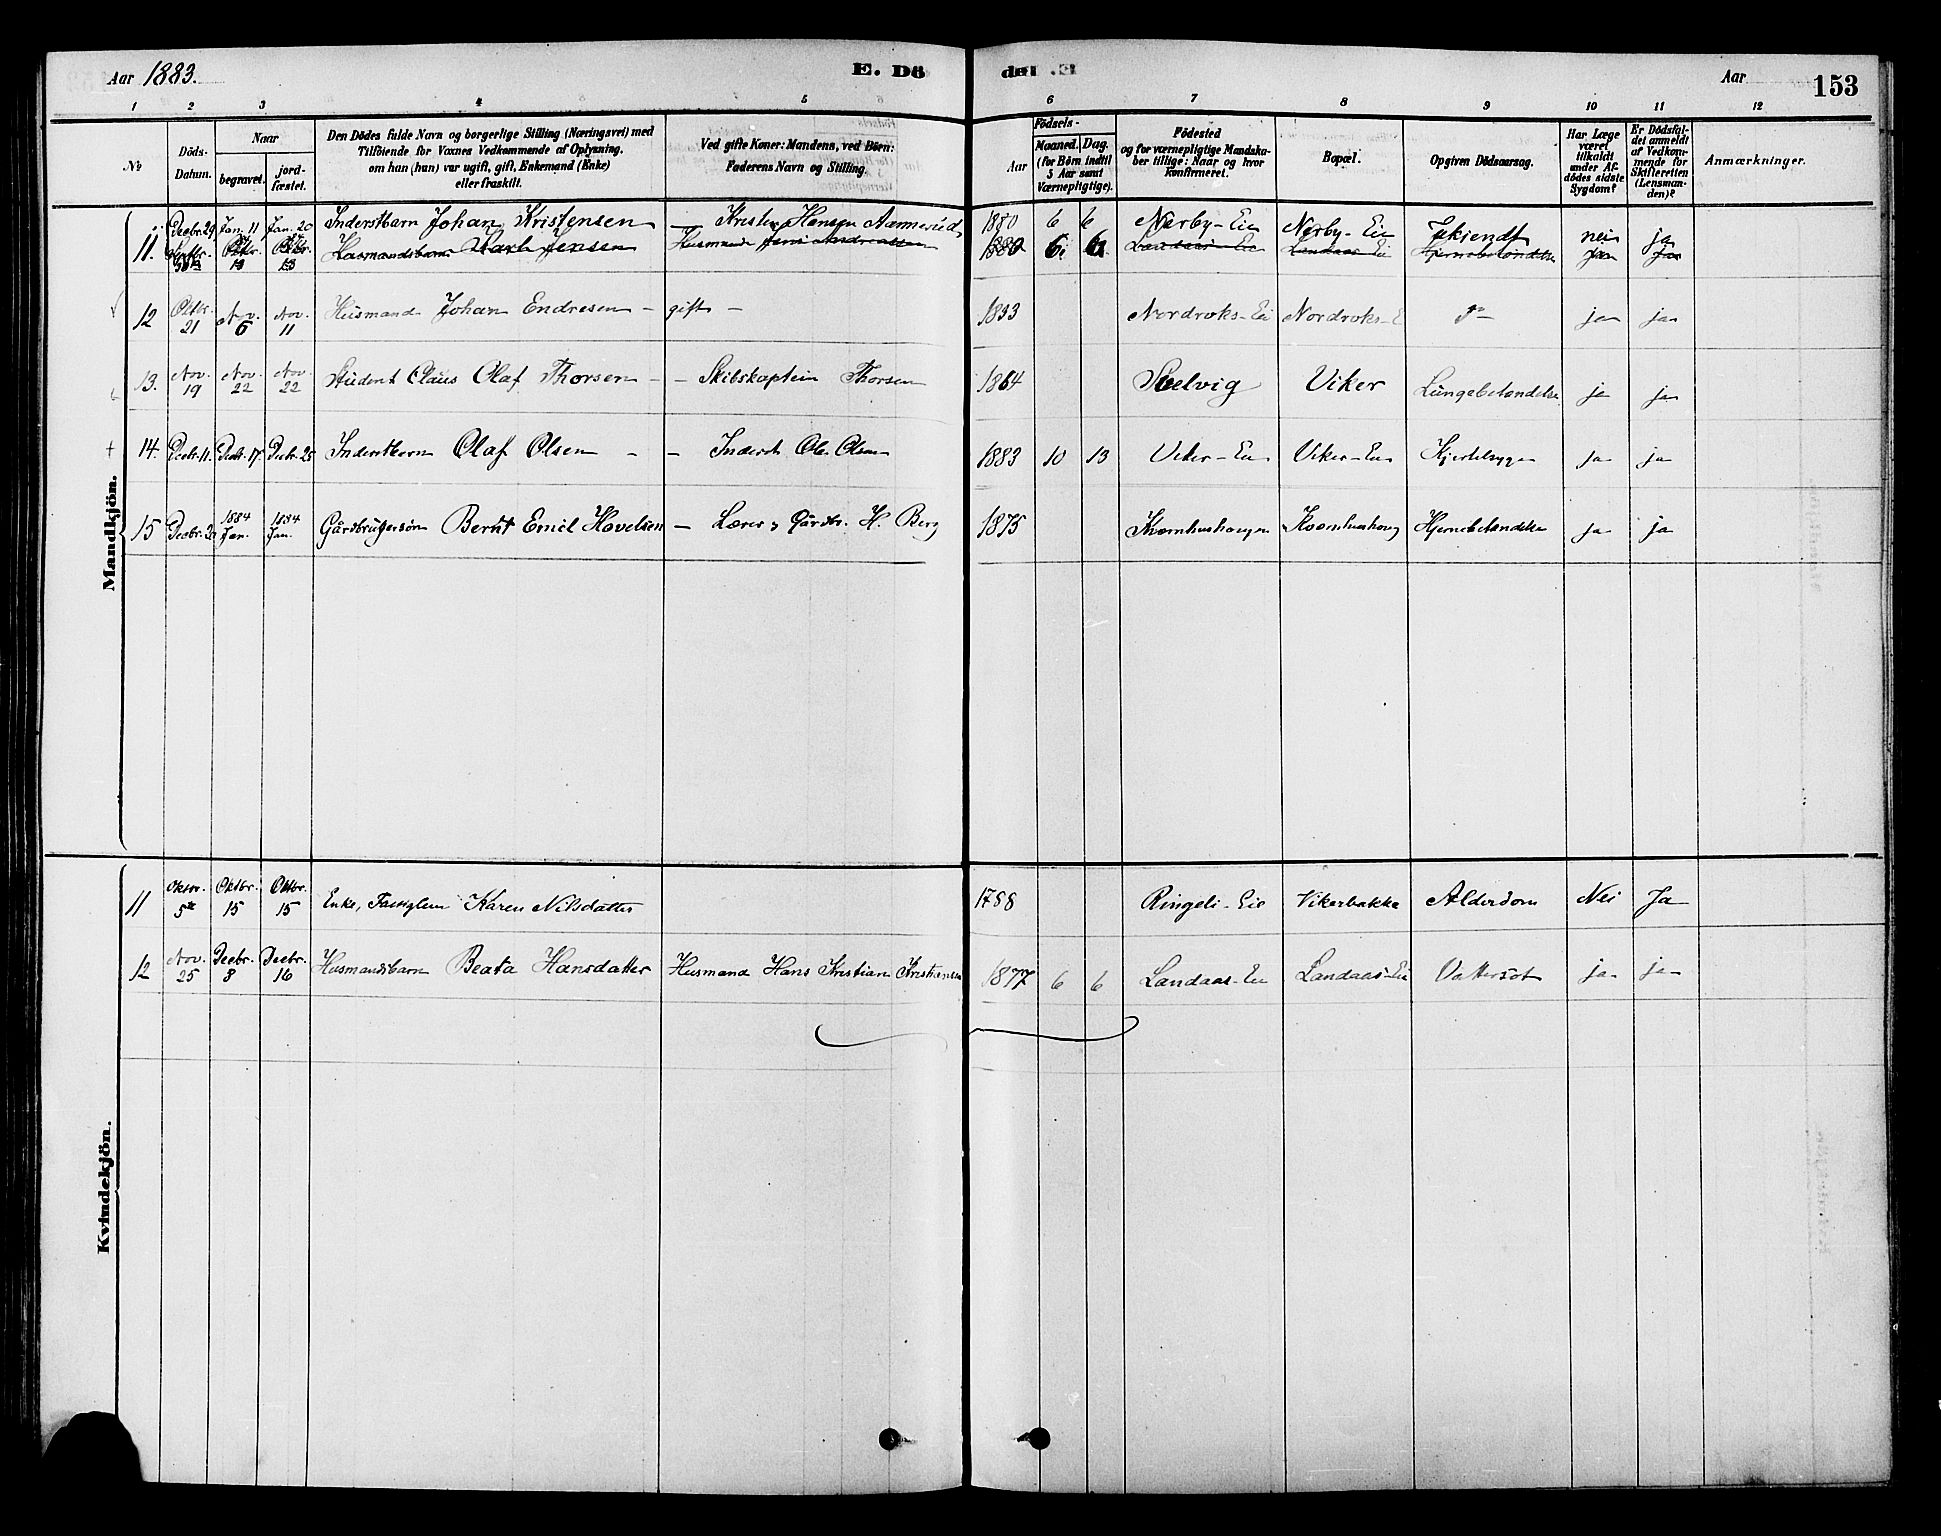 Aar 1883. E. Dö
1 2 3 4 5
№ Döds-Datum. Naar begravet. jordfæstet. Den Dödes fulde Navn og borgerlige Stilling (Næringsvei) med Tilföiende for Voxnes Vedkommende af Oplysning, om han (hun) var ugift, gift, Enkemand (Enke) eller fraskilt. Ved gifte Koner: Mandens, ved Börn: Faderens Navn og Stilling.
døde. Aar 153
6 7 8 9 10 11 12
Födsels- Aar Maaned. Dag. (for Börn indtil 5 Aar samt Værnepligtige). Födested og for værnepligtige Mandskaber tillige: Naar og hvor Konfirmeret. Bopæl. Opgiven Dödsaarsag. Har Læge været tilkaldt under Afdödes sidste Sygdom? Er Dödsfaldet anmeldt af Vedkommende for Skifteretten (Lensmanden)? Anmærkninger.
Mandkjön.
Decbr. 29 Jan. 11 Jan. 20 Inderstbarn Johan Kristensen — Kristen Hansen Aamerud 1880 6 6 Nærby-Eie Nærby-Eie Ukjendt nei ja
11. Oktbr. 13 Oktbr. 13 Husmandsbarn Karl Jensen Husmand Jens Andreassen 1880 6 6 Landaas-Eie Landaas-Eie Hjernebetændelse ja ja
12 Oktbr. 21 Nov. 6 Nov. 11 Husmand Johan Endresen — gift — 1833 Nordroks-Ei Nordroks-E ja ja
13. Nov. 19 Nov. 22 Nov. 22 Student Claus Olaf Thorsen — Skibskaptein Thorsen 1864 Svelvig Viker Lungebetændelse ja ja
14. Decbr. 11. Decbr. 17. Decbr. 25 Inderstbarn Olaf Olsen — Inderst Ole Olsen 1883 10 13 Viker-Eie Viker-Eie Hjertesyge ja ja
15 Decbr. 1884 Jan. 1884 Jan. Gårdbrugersøn Bernt Emil Hovelsen — Lærer & Gårdbr. H. Berg 1875 Kornhushaugen Kornhushaug Hjernebetændelse ja ja
Kvindekjön.
11 Oktbr. 5te Oktbr. 15 Oktbr. 15 Enke, Fattiglem Karen Nilsdatter 1788 Ringeli-Eie Vikerbakke Alderdom Nei Ja
12 Nov. 25 Decbr. 8 Decbr. 16 Husmandsbarn Beata Hansdatter Husmand Hans Kristian Kristiansen 1877 6 6 Landaas-Eie Landaas-Eie Vattersot ja ja